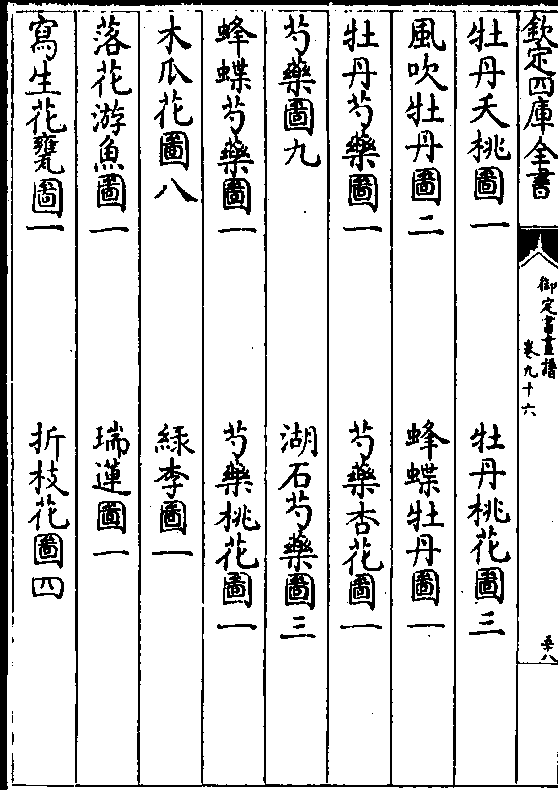 欽定四庫全書
御定書畫譜
卷九十六
五八
牡丹夭桃圖一　牡丹桃花圖三
風吹牡丹圖二　蜂蝶牡丹圖一
牡丹芍藥圖一　芍藥杏花圖一
芍藥圖九　湖石芍藥圖三
蜂蝶芍藥圖一　芍藥桃花圖一
木瓜花圖八　綠李圖一
落花游魚圖一　瑞蓮圖一
寫生花甕圖一　折枝花圖四